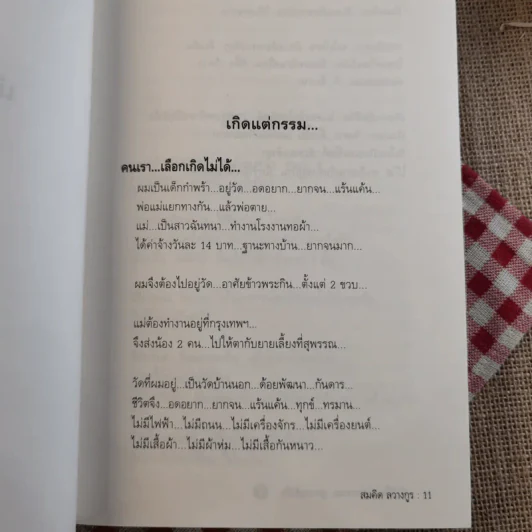 เกิดแต่กรรม...
คนเรา...เลือกเกิดไม่ได้...
ผมเป็นเด็กกำพร้า...อยู่วัด...อดอยาก...ยากจน...แร้นแค้น...
พ่อแม่แยกทางกัน...แล้วพ่อตาย...
แม่...เป็นสาวฉันทนา...ทำงานโรงงานทอผ้า...
ได้ค่าจ้างวันละ 14 บาท...ฐานะทางบ้าน...ยากจนมาก...
ผมจึงต้องไปอยู่วัด...อาศัยข้าวพระกิน...ตั้งแต่ 2 ขวบ...
แม่ต้องทำงานอยู่ที่กรุงเทพฯ...
จึงส่งน้อง 2 คน...ไปให้ตากับยายเลี้ยงที่สุพรรณ...
วัดที่ผมอยู่...เป็นวัดบ้านนอก...ด้อยพัฒนา...กันดาร...
ชีวิตจึง...อดอยาก...ยากจน...แร้นแค้น...ทุกข์...ทรมาน...
ไม่มีไฟฟ้า...ไม่มีถนน...ไม่มีเครื่องจักร...ไม่มีเครื่องยนต์...
ไม่มีเสื้อผ้า...ไม่มีผ้าห่ม...ไม่มีเสื้อกันหนาว...
สมคิด ลวางกูร : 11